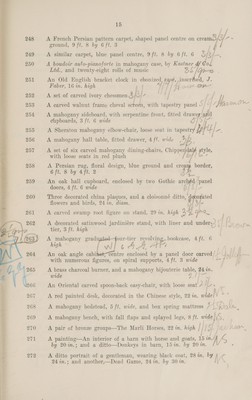 15
248 A French Persian pattern carpet, shaped panel centre on cream
ground, 9 ft. 8 by 6 ft. 3
249 A similar carpet, blue panel centre, 9 ft. 8 by 6 ft. 6
250 A boudoir auto-pianoforte in mahogany case, by Kastner & Co.
Ltd., and twenty-eight rolls of music
251 An Old English bracket clock in ebonised case,
Faber, 16 in. high
252 A set of carved ivory chessmen
253 A carved walnut frame cheval screen, with tapestry panel
254 A mahogany sideboard, with serpentine front, fitted drawer and
cupboards, 5 ft. 6 wide
255 A Sheraton mahogany elbow-chair, loose seat in tapestry
256 A mahogany hall table, fitted drawer, 4 ft. wide
257 A set of six carved mahogany dining-chairs, Chippendale style,
with loose seats in red plush
258 A Persian rug, floral design, blue ground and cream border,
6 ft. 8 by 4 ft. 2
259 An oak hall cupboard, enclosed by two Gothic arched panel
doors, 4 ft. 6 wide
260 Three decorated china plaques, and a cloisonné ditto, decorated
flowers and birds, 24 in. diam.
261 A carved swamp root figure on stand, 29 in. high
262 A decorated satinwood jardinière stand, with liner and under
tier, 3 ft. high
263 A mahogany graduated four-tier revolving bookcase, 4 ft. 6
high
264 An oak angle cabinet, centre enclosed by a panel door carved
with numerous figures, on spiral supports, 4 ft. 3 wide
265 A brass charcoal burner, and a mahogany bijouterie table, 24 in.
wide
266 An Oriental carved spoon-back easy-chair, with loose seat
267 A red painted desk, decorated in the Chinese style, 32 in. wide
268 A mahogany bedstead, 5 ft. wide, and box spring mattress
269 A mahogany bench, with fall flaps and splayed legs, 9 ft. wide
270 A pair of bronze groups—The Marli Horses, 22 in. high
271 A painting—An interior of a barn with horse and goats, 15 in.
by 20 in.; and a ditto—Donkeys in barn, 15 in. by 20 in.
272 A ditto portrait of a gentleman, wearing black coat, 28 in. by
24 in.; and another,—Dead Game, 24 in. by 36 in.